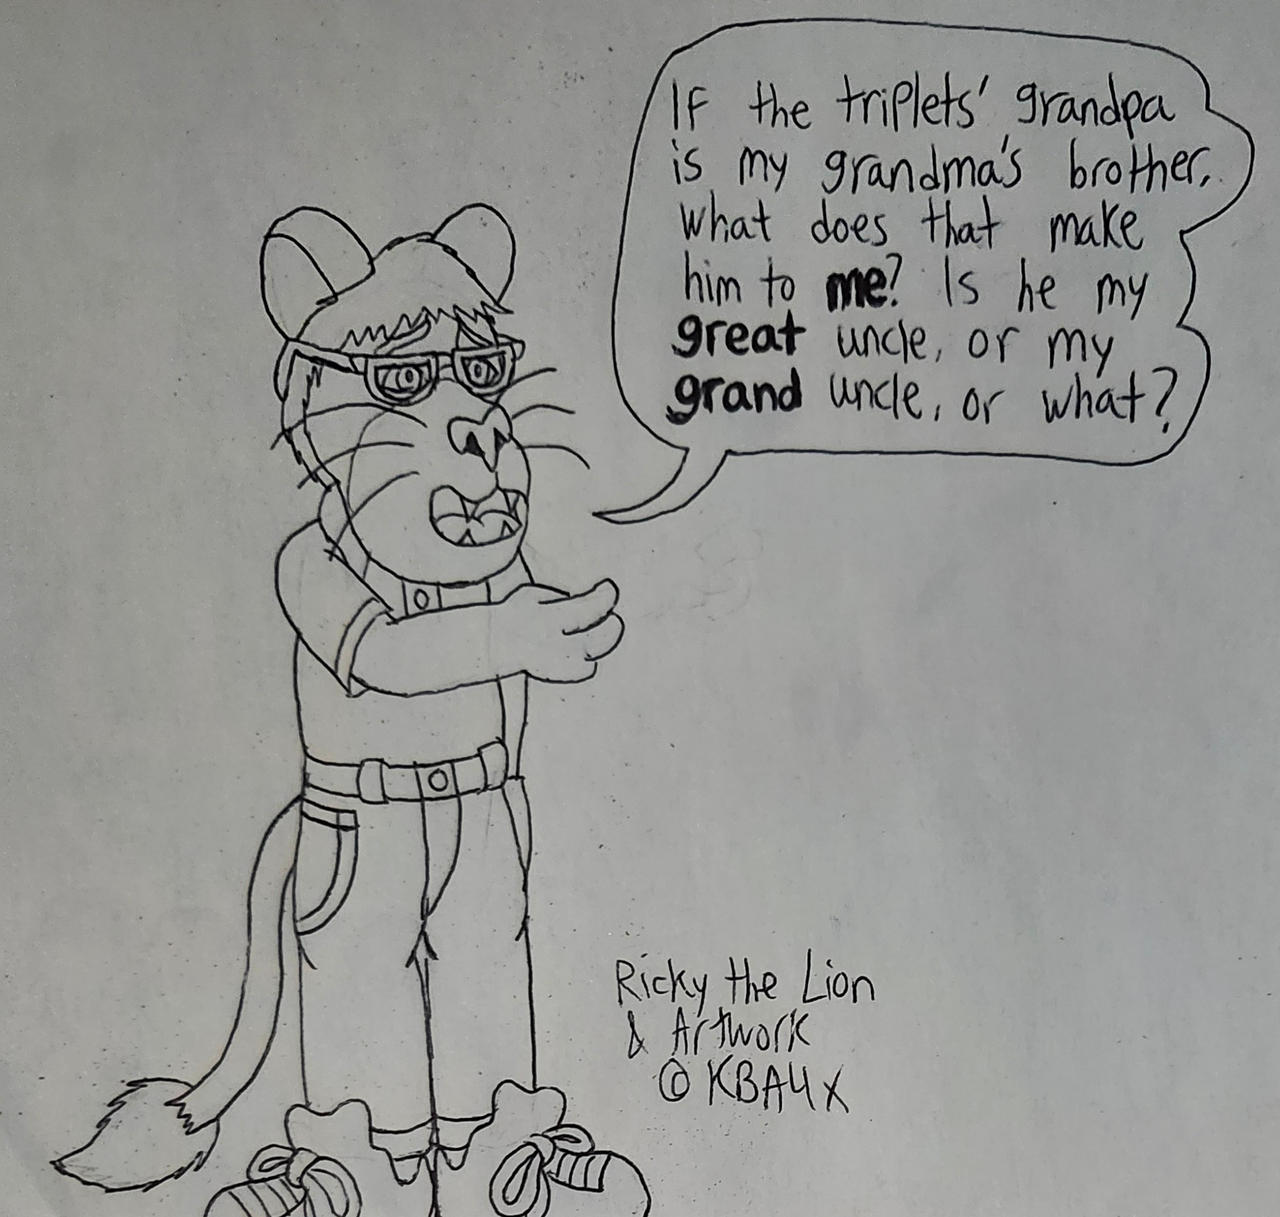 If the triplets' grandpa
is my grandma's brother,
what does that make
him to me? Is he my
great uncle, or my
grand uncle, or what?
Ricky the Lion
& Artwork
© KBA4X